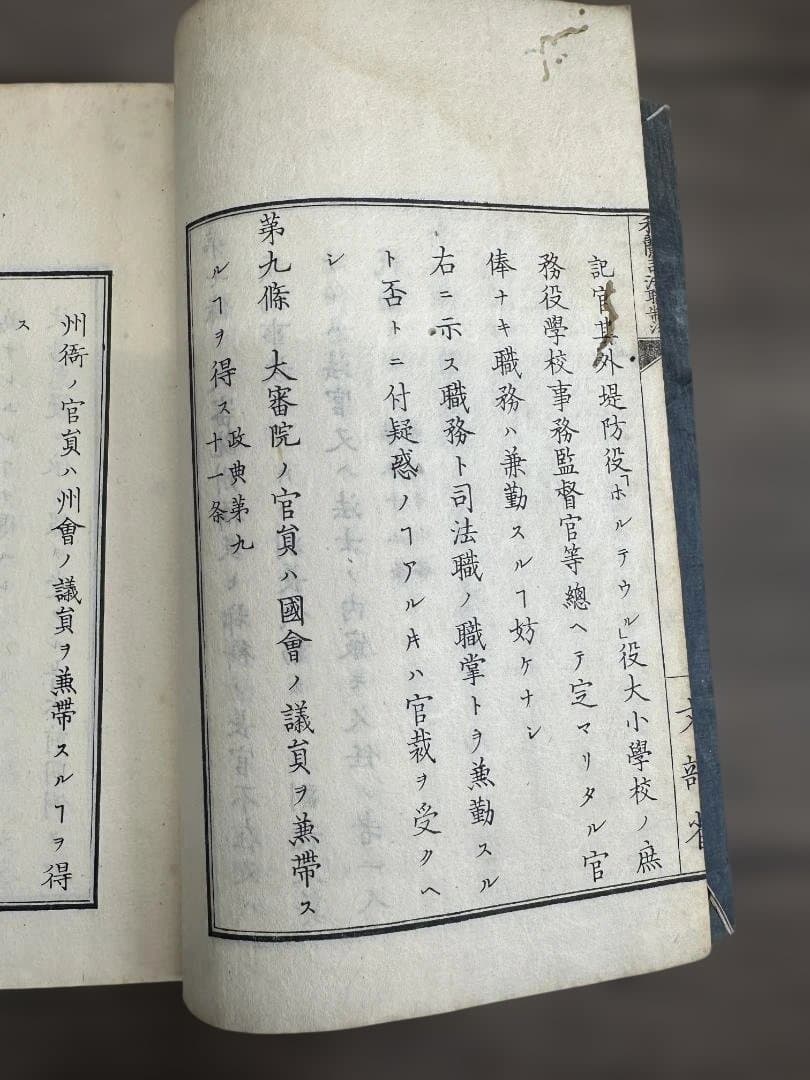 和蘭司法職制法
文部省
記官其外堤防役「ホルテウル」役大小學校ノ庶
務役學校事務監督官等總ヘテ定マリタル官
俸ナキ職務ハ兼勤スルヿ妨ケナシ
右ニ示ス職務ト司法職ノ職掌トヲ兼勤スル
ト否トニ付疑惑ノヿアル片ハ官裁ヲ受クヘ
シ
第九條 大審院ノ官員ハ國會ノ議員ヲ兼帶ス
ルヿヲ得ス 政典第九
十一条
州衙ノ官員ハ州會ノ議員ヲ兼帶スルヿヲ得
ス